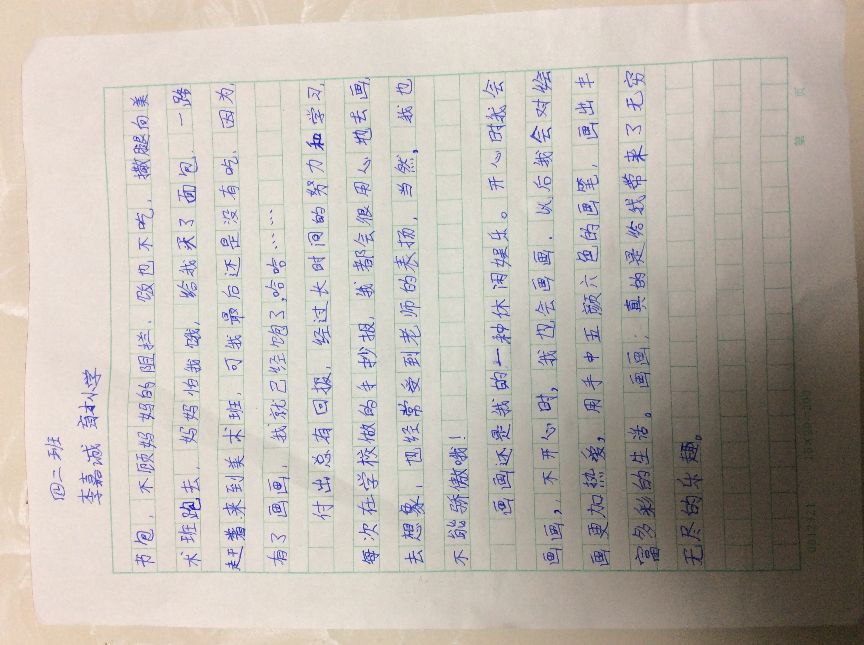 四二班
李嘉诚 育才小学
书包，不顾妈妈的阻拦，饭也不吃，撒腿向美
术班跑去，妈妈怕我饿，给我买了面包，一路
赶着来到美术班，可我最后还是没有吃，因为，
有了画画，我就已经饱了，哈哈……
付出总有回报，经过长时间的努力和学习，
每次在学校做的手抄报，我都会很用心地去画，
去想象，也经常受到老师的表扬，当然，我也
不能骄傲哦！
画画还是我的一种休闲娱乐。开心时我会
画画，不开心时，我也会画画．以后我会对绘
画更加热爱，用手中五颜六色的画笔，画出丰
富多彩的生活。画画，真的是给我带来了无穷
无尽的乐趣。
第 页